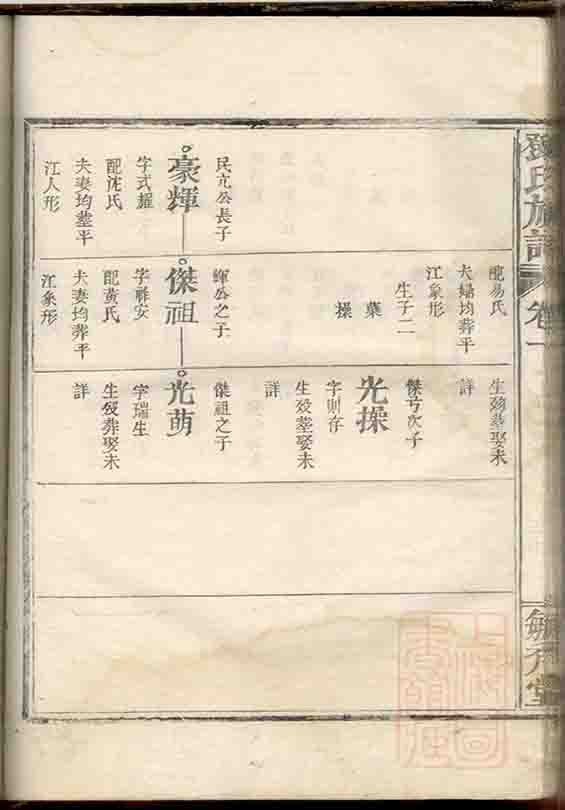 鄧氏族譜
卷一
敏介堂
民亢公長子
豪輝
字式耀
配沈氏
夫妻均塟平
江人形
配易氏
夫婦均葬平
江象形
生子二
葉
操
輝公之子
傑祖
字祚安
配黃氏
夫妻均葬平
江象形
生歿塟娶未
詳
傑亏次子
光操
字則存
生歿塟娶未
詳
傑祖之子
光萌
字瑞生
生歿葬娶未
詳
上海圖
書館藏